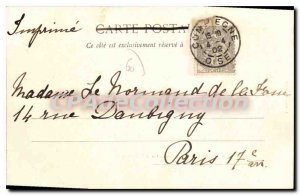 Imprimé
CARTE POSTALE
Ce côté est exclusivement réservé à
COMPIEGNE
02
OISE
Madame Le Normand de la
14 rue Daubigny
Paris 17e
arr.